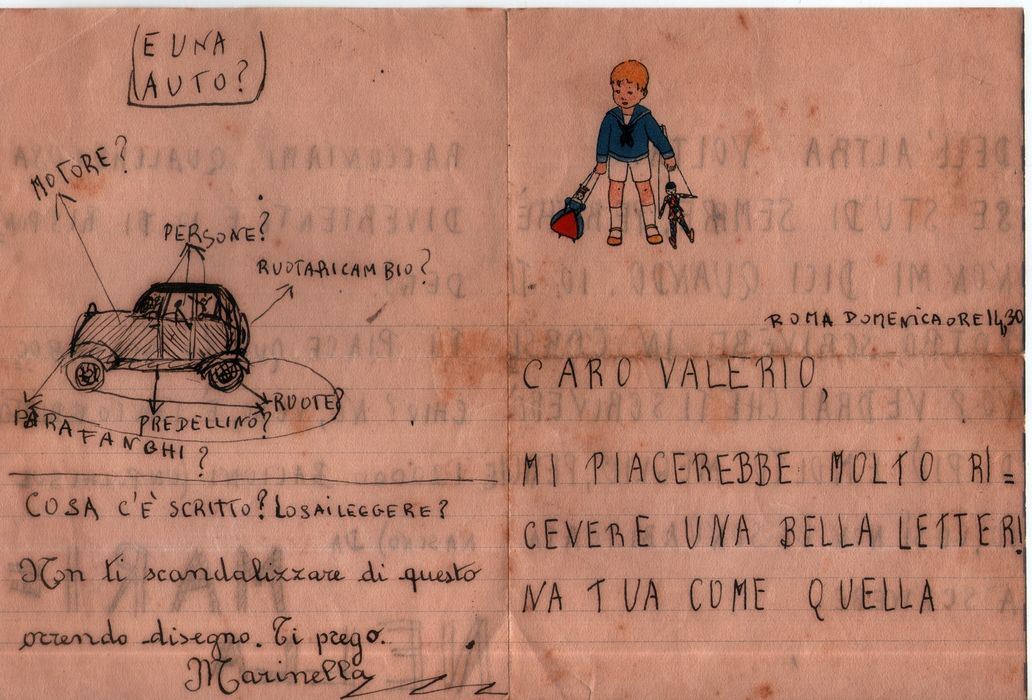 E UNA
AUTO?
MOTORE?
PERSONE?
RUOTARICAMBIO?
RUOTE?
PREDELLINO?
PARAFANGHI?
COSA C'È SCRITTO? LOSAILEGGERE?
Non ti scandalizzare di questo
orrendo disegno. Ti prego.
Marinella
ROMA DOMENICA ORE 14,30
CARO VALERIO,
MI PIACEREBBE MOLTO RI=
CEVERE UNA BELLA LETTERI
NA TUA COME QUELLA